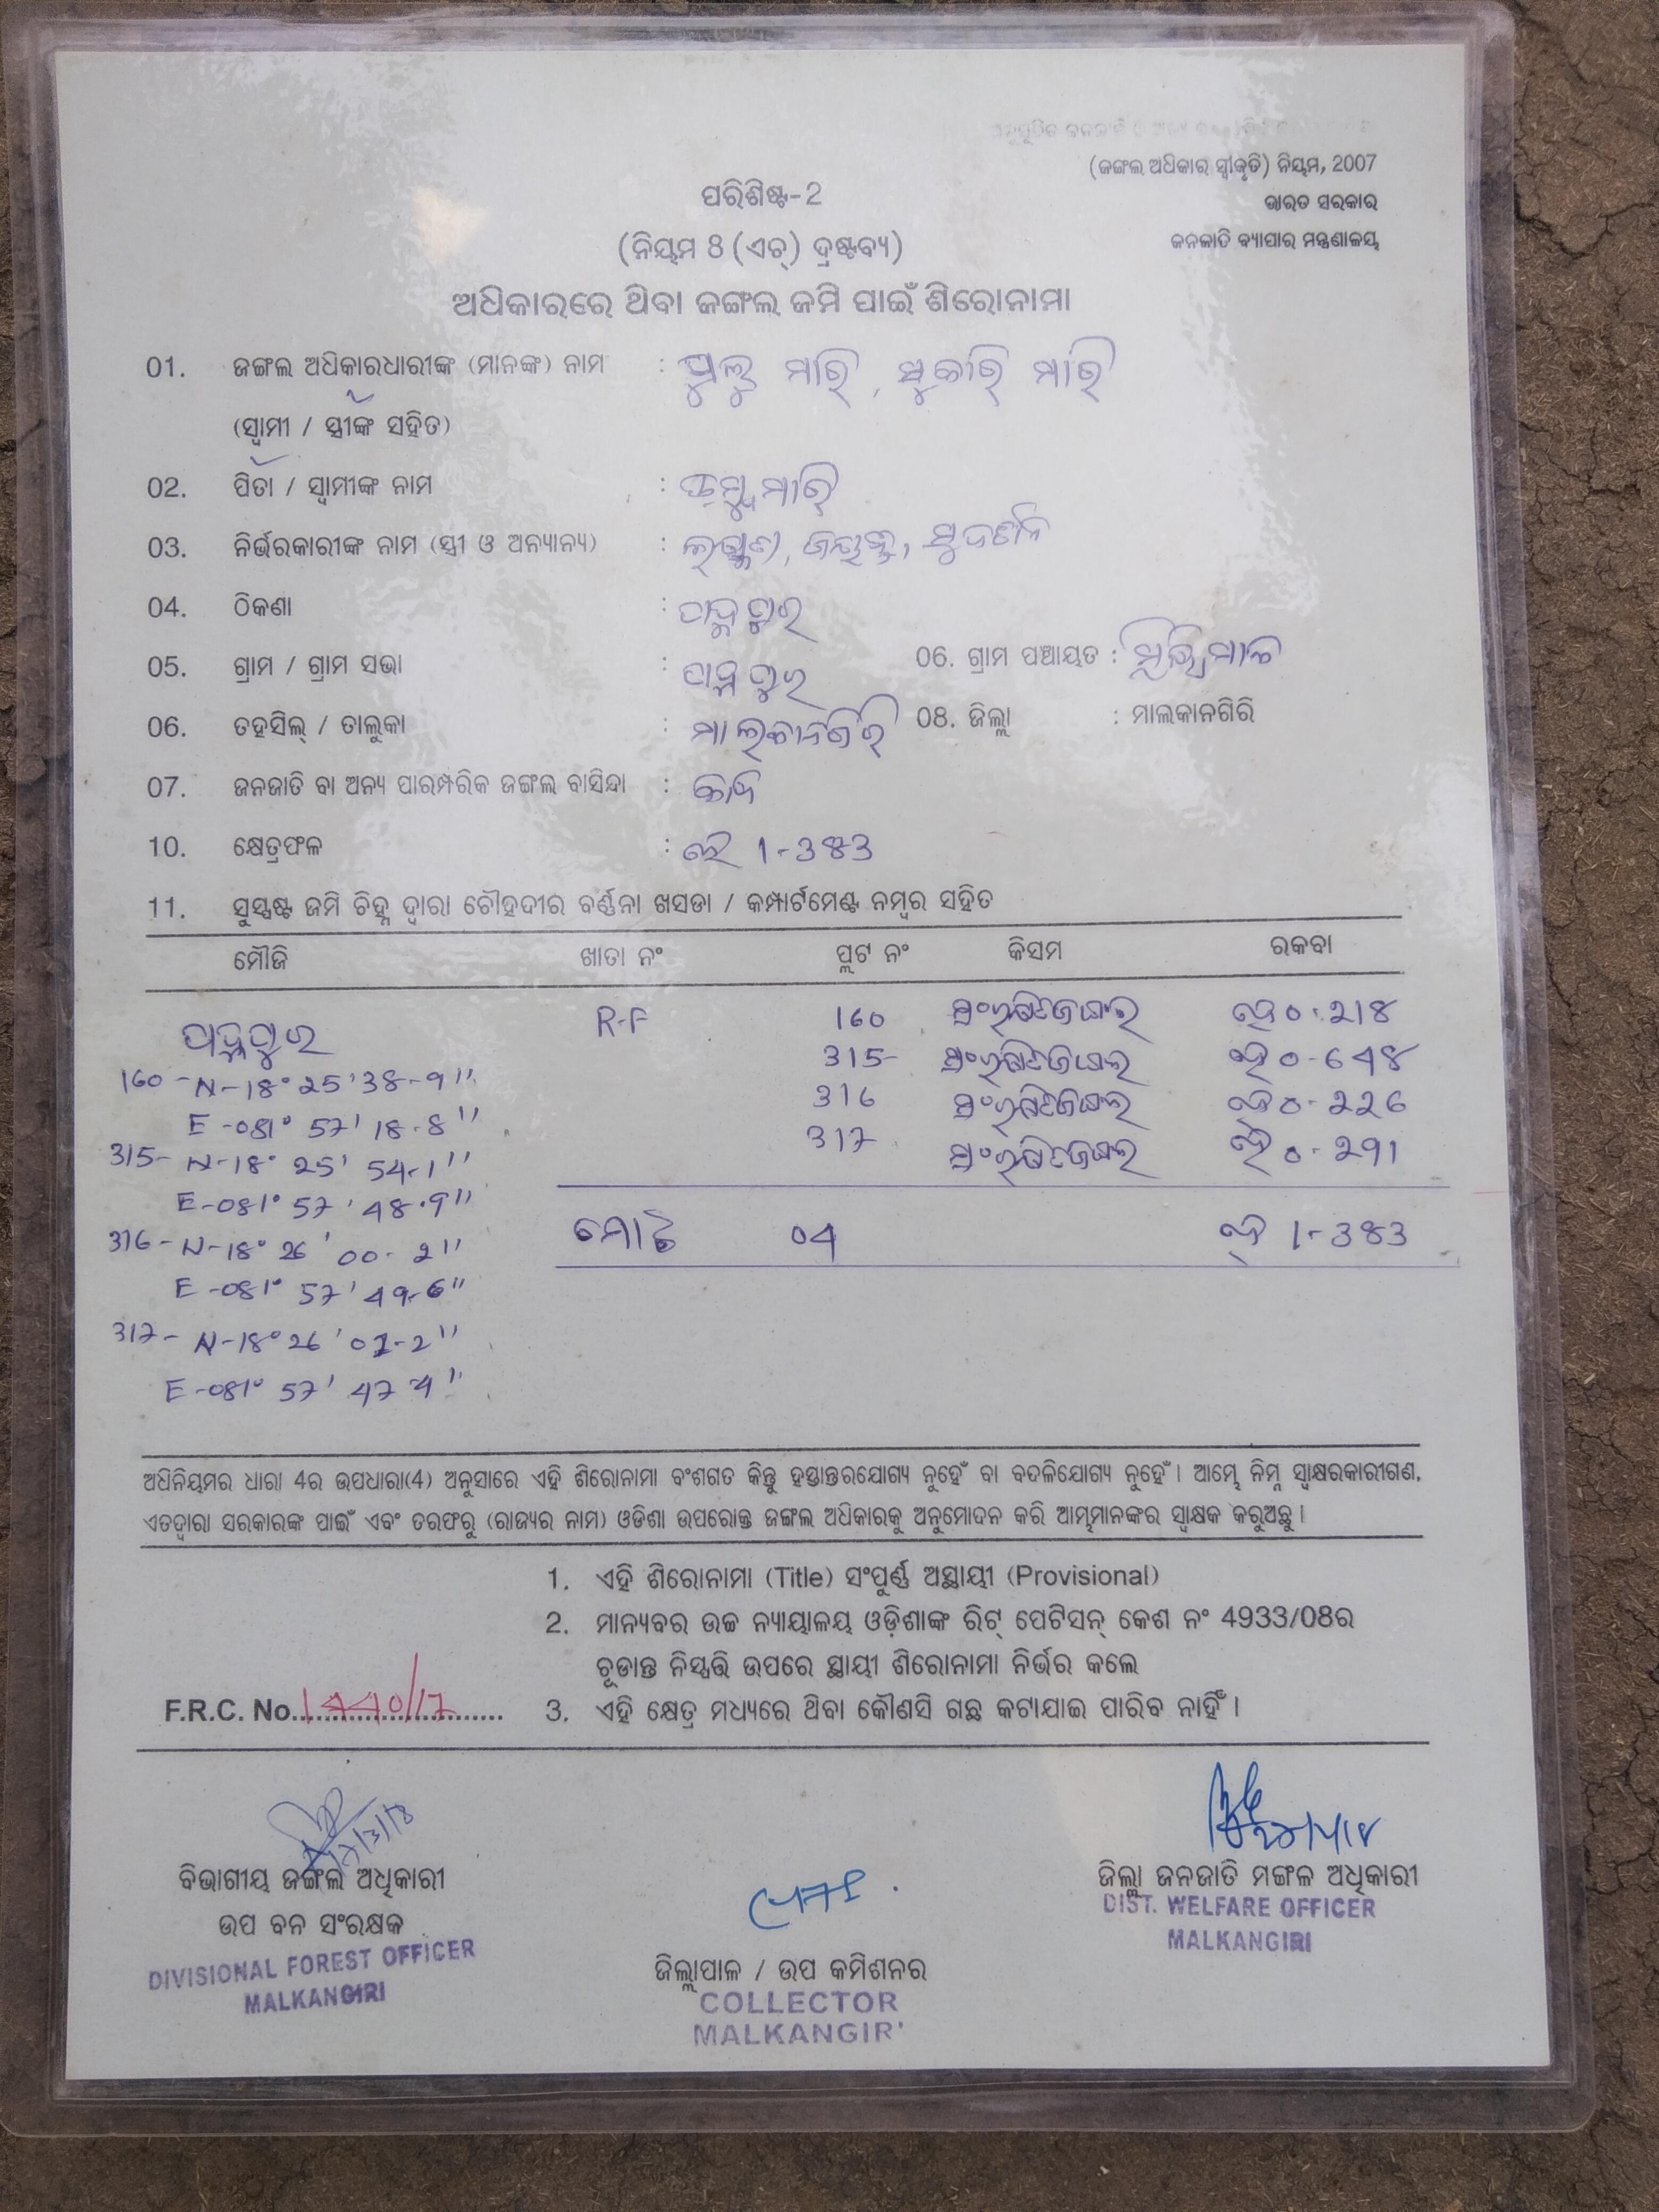 (ଜଙ୍ଗଲ ଅଧିକାର ସ୍ୱୀକୃତି) ନିୟମ, 2007
ଭାରତ ସରକାର
ଜନଜାତି ବ୍ୟାପାର ମନ୍ତ୍ରଣାଳୟ
ପରିଶିଷ୍ଟ-2
(ନିୟମ 8 (ଏଚ୍) ଦ୍ରଷ୍ଟବ୍ୟ)
ଅଧିକାରରେ ଥିବା ଜଙ୍ଗଲ ଜମି ପାଇଁ ଶିରୋନାମା
01. ଜଙ୍ଗଲ ଅଧିକାରଧାରୀଙ୍କ (ମାନଙ୍କ) ନାମ : ମାରି, ସୁକରି ମାରି
(ସ୍ୱାମୀ / ସ୍ତ୍ରୀଙ୍କ ସହିତ)
02. ପିତା / ସ୍ୱାମୀଙ୍କ ନାମ : ମାରି
03. ନିର୍ଭରକାରୀଙ୍କ ନାମ (ସ୍ତ୍ରୀ ଓ ଅନ୍ୟାନ୍ୟ) : ଲକ୍ଷ୍ମଣ, ଜୟନ୍ତ, ସୁଦର୍ଶନ
04. ଠିକଣା : ପଦ୍ମପୁର
05. ଗ୍ରାମ / ଗ୍ରାମ ସଭା : ପଦ୍ମପୁର 06. ଗ୍ରାମ ପଞ୍ଚାୟତ :
06. ତହସିଲ୍ / ତାଲୁକା : ମାଲକାନଗିରି 08. ଜିଲ୍ଲା : ମାଲକାନଗିରି
07. ଜନଜାତି ବା ଅନ୍ୟ ପାରମ୍ପରିକ ଜଙ୍ଗଲ ବାସିନ୍ଦା :
10. କ୍ଷେତ୍ରଫଳ : 1-383
11. ସୁସ୍ପଷ୍ଟ ଜମି ଚିହ୍ନ ଦ୍ୱାରା ଚୌହଦୀର ବର୍ଣ୍ଣନା ଖସଡା / କମ୍ପାର୍ଟମେଣ୍ଟ ନମ୍ବର ସହିତ
ମୌଜି ଖାତା ନଂ ପ୍ଲଟ ନଂ କିସମ ରକବା
ପଦ୍ମପୁର R-F 160 ସଂରକ୍ଷିତଜଙ୍ଗଲ 0.218
315 ସଂରକ୍ଷିତଜଙ୍ଗଲ 0-648
316 ସଂରକ୍ଷିତଜଙ୍ଗଲ 0-226
317 ସଂରକ୍ଷିତଜଙ୍ଗଲ 0-291
ମୋଟ 04 1-383
160 - N-18° 25' 38-9"
E-081° 57' 18.8"
315- N-18° 25' 54-1"
E-081° 57' 48.9"
316- N-18° 26' 00-2"
E-081° 57' 49-6"
317- N-18° 26' 01-2"
E-081° 57' 47-4"
ଅଧିନିୟମର ଧାରା 4ର ଉପଧାରା(4) ଅନୁସାରେ ଏହି ଶିରୋନାମା ବଂଶଗତ କିନ୍ତୁ ହସ୍ତାନ୍ତରଯୋଗ୍ୟ ନୁହେଁ ବା ବଦଳିଯୋଗ୍ୟ ନୁହେଁ । ଆମ୍ଭେ ନିମ୍ନ ସ୍ୱାକ୍ଷରକାରୀଗଣ,
ଏତଦ୍ୱାରା ସରକାରଙ୍କ ପାଇଁ ଏବଂ ତରଫରୁ (ରାଜ୍ୟର ନାମ) ଓଡିଶା ଉପରୋକ୍ତ ଜଙ୍ଗଲ ଅଧିକାରକୁ ଅନୁମୋଦନ କରି ଆମ୍ଭମାନଙ୍କର ସ୍ୱାକ୍ଷକ କରୁଅଛୁ ।
1. ଏହି ଶିରୋନାମା (Title) ସଂପୁର୍ଣ୍ଣ ଅସ୍ଥାୟୀ (Provisional)
2. ମାନ୍ୟବର ଉଚ୍ଚ ନ୍ୟାୟାଳୟ ଓଡ଼ିଶାଙ୍କ ରିଟ୍ ପେଟିସନ୍ କେଶ ନଂ 4933/08ର
ଚୂଡାନ୍ତ ନିସ୍ପତ୍ତି ଉପରେ ସ୍ଥାୟୀ ଶିରୋନାମା ନିର୍ଭର କଲେ
F.R.C. No. 3. ଏହି କ୍ଷେତ୍ର ମଧ୍ୟରେ ଥିବା କୌଣସି ଗଛ କଟାଯାଇ ପାରିବ ନାହିଁ ।
ବିଭାଗୀୟ ଜଙ୍ଗଲ ଅଧିକାରୀ
ଉପ ବନ ସଂରକ୍ଷକ
DIVISIONAL FOREST OFFICER
MALKANGIRI
ଜିଲ୍ଲାପାଳ / ଉପ କମିଶନର
COLLECTOR
MALKANGIRI
ଜିଲ୍ଲା ଜନଜାତି ମଙ୍ଗଳ ଅଧିକାରୀ
DIST. WELFARE OFFICER
MALKANGIRI